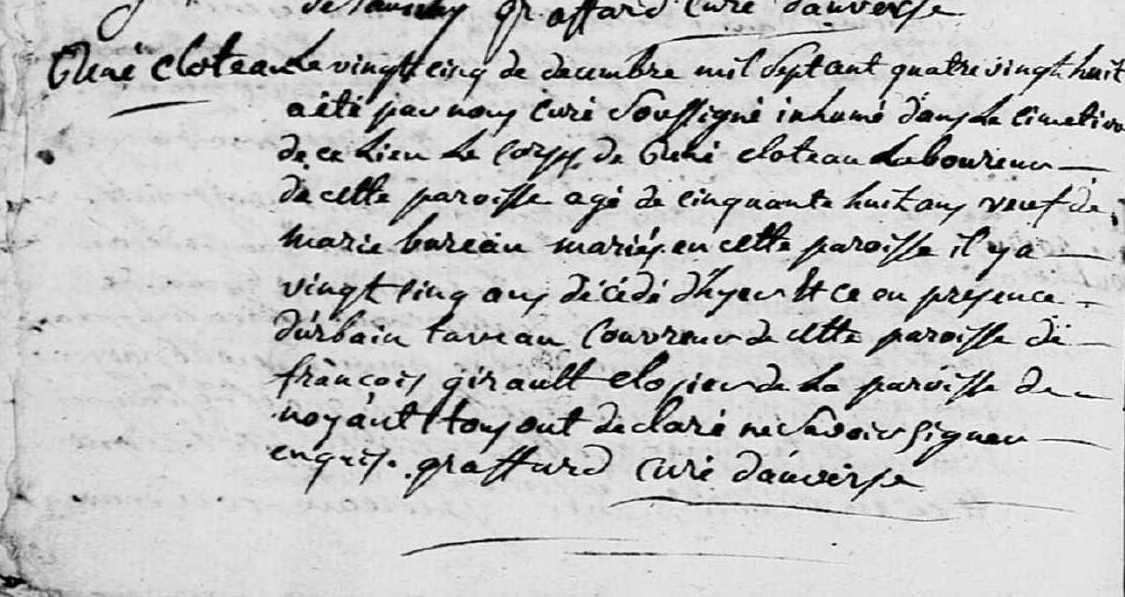 graffard Curé dauverse
René cloteau Le vingt cinq de decembre mil Sept ant quatre vingt huit
a été par nous Curé Soussigné inhumé dans Le Cimetiere
de ce Lieu Le Corps de René cloteau Laboureur
de cette paroisse agé de cinquante huit ans veuf de
marie bureau mariés en cette paroisse il y a
vingt Cinq ans décédé d'hyer Et ce en presence
d'urbain taveau Couvreur de cette paroisse de
françois girault closier de La paroisse de
noyant tous ont declaré ne Savoir Signer
enquis. graffard Curé dauverse